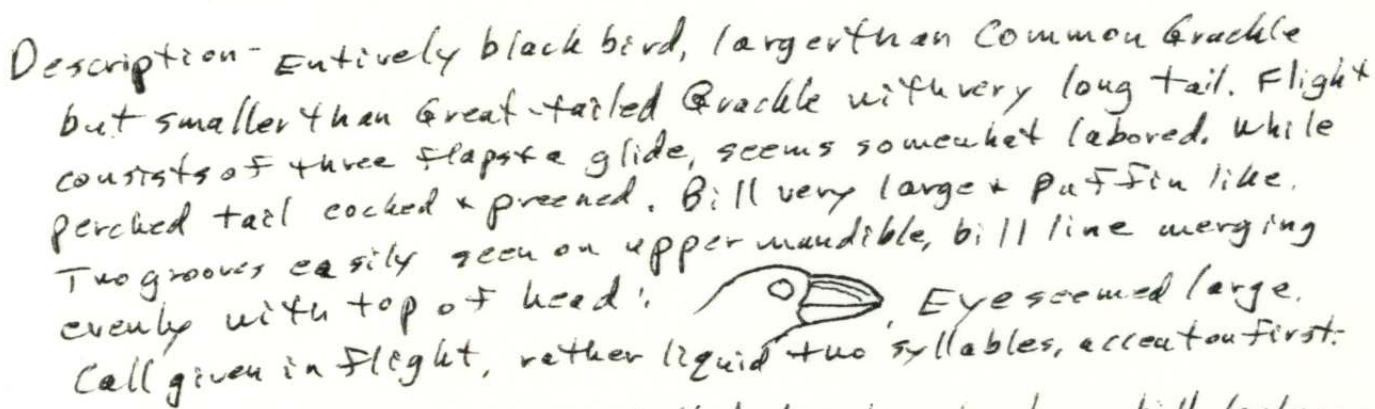 Description - Entirely black bird, larger than Common Grackle
but smaller than Great-tailed Grackle with very long tail. Flight
consists of three flaps & a glide, seems somewhat labored. While
perched tail cocked & preened. Bill very large & puffin like.
Two grooves easily seen on upper mandible, bill line merging
evenly with top of head: . Eye seemed large.
Call given in flight, rather liquid two syllables, accent on first.